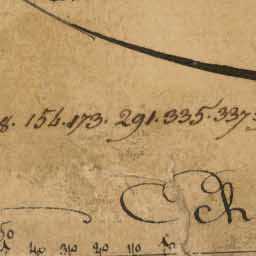 8. 154. 173. 291. 335. 337
Ch
50
40 30 20 10